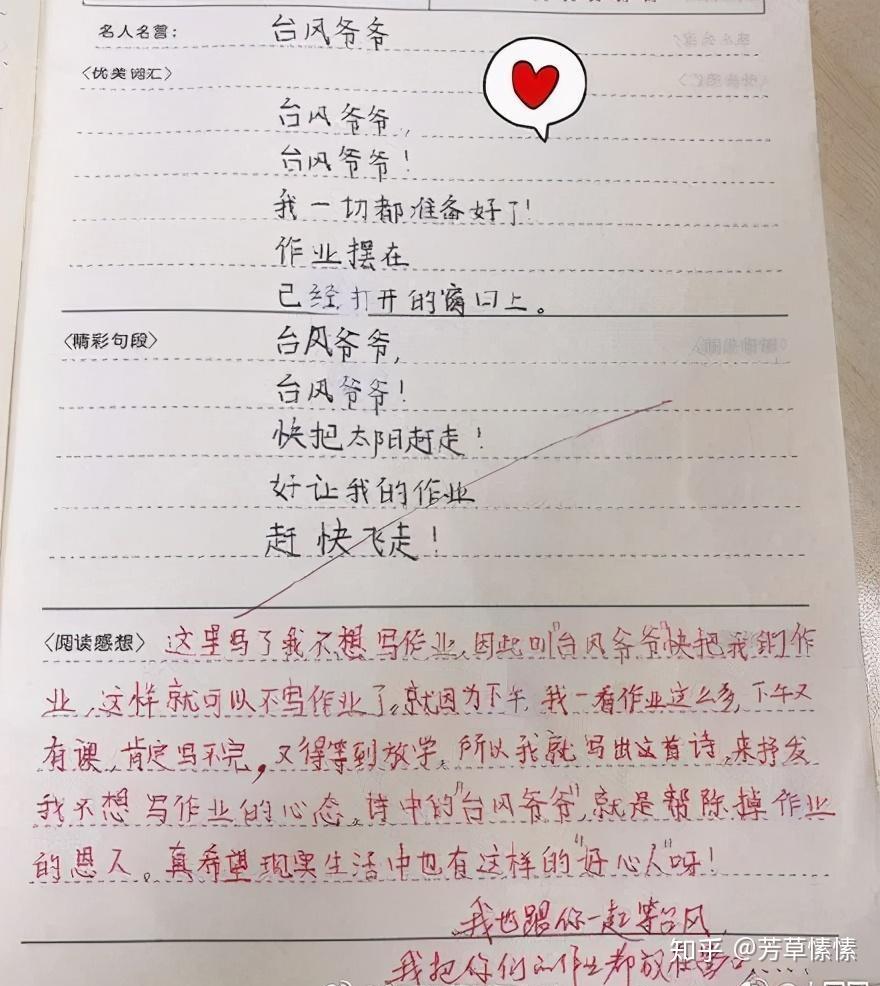 名人名言：
台风爷爷
〈优美词汇〉
台风爷爷，
台风爷爷！
我一切都准备好了！
作业摆在
已经打开的窗口上。
〈精彩句段〉
台风爷爷，
台风爷爷！
快把太阳赶走！
好让我的作业
赶快飞走！
〈阅读感想〉这里写了我不想写作业，因此叫"台风爷爷"快把我们作
业，这样就可以不写作业了。就因为下午，我一看作业这么多，下午又
有课，肯定写不完，又得等到放学，所以我就写出这首诗，来抒发
我不想写作业的心态。诗中的"台风爷爷"，就是帮除掉作业
的恩人。真希望现实生活中也有这样的"好心人"呀！
我也跟你一起等台风，
我把你们的作业都放在窗口……
知乎 @芳草愫愫